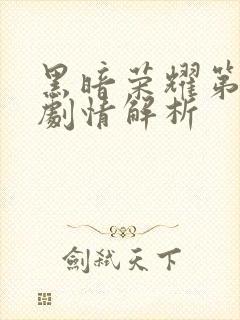 黑暗荣耀第
劇情解析
劍弑天下